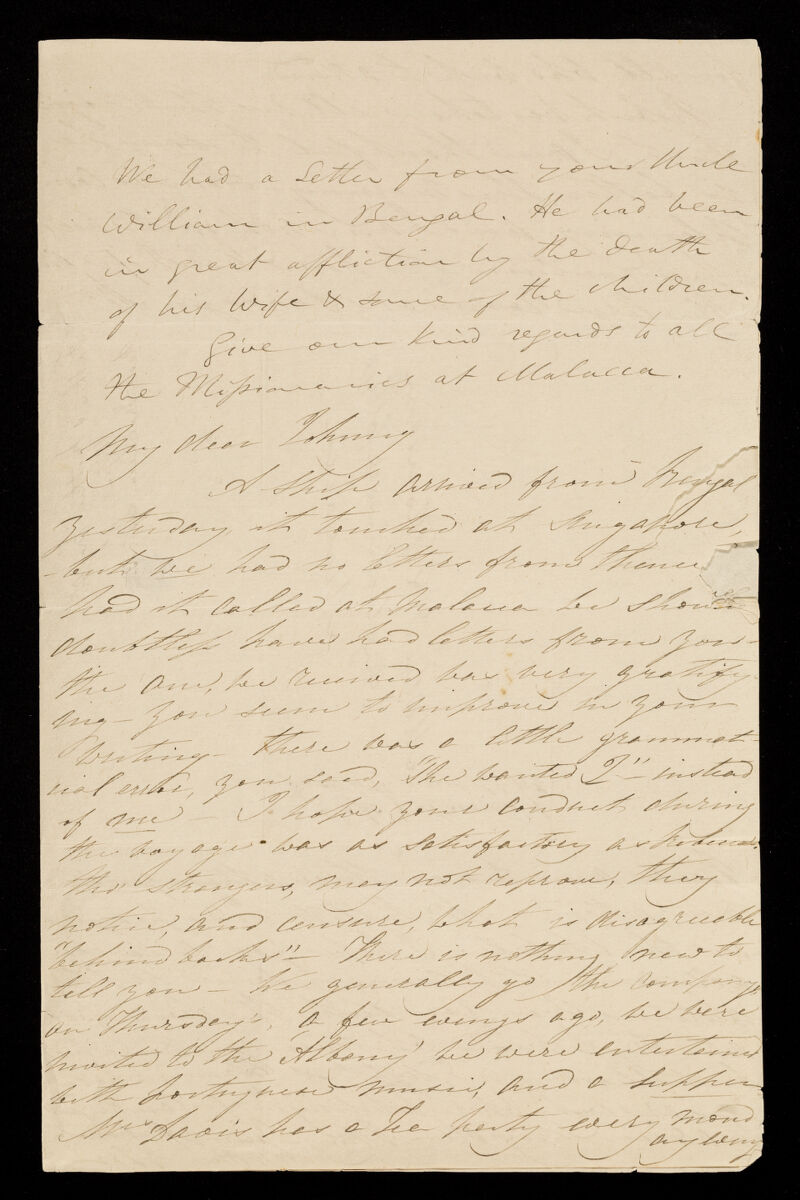 We had a Letter from your Uncle
William in Bengal. He had been
in great affliction by the death
of his Wife & some of the children.
Give our kind regards to all
the Missionaries at Malacca.
My dear Johnny
A ship arrived from Bengal
yesterday, it touched at Singapore,
but we had no letters from thence
had it called at Malacca we should
doubtless have had letters from you -
the one, we received was very gratify-
ing - you seem to improve in your
writing - there was a little grammat-
ical error, you said, "She wanted I" - instead
of me - I hope your conduct during
the voyage was as satisfactory as
tho' strangers, may not reprove, they
notice, and censure, what is disagreeable
"behind backs" - There is nothing new to
tell you - We generally go the Company's
on Thursday's, a few evengs ago, we were
invited to the 'Albany' we were entertained
with Portuguese music, and a supper
Mrs Davis has a Tea party every mond
ay eveng